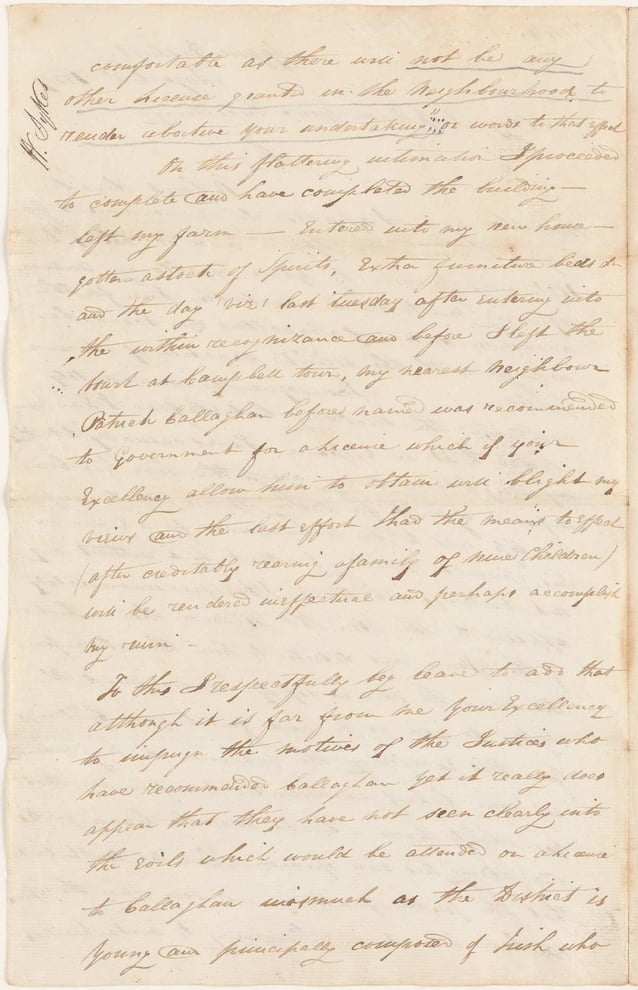 W. Sykes
comfortable as there will not be any
other Licence granted in the Neighbourhood to
render abortive your undertaking" or words to that effect
On this flattering intimation I proceeded
to complete and have completed the building —
left my farm — Entered into my new house —
gotten a stock of Spirits, Extra furniture beds &c
and the day viz! last Tuesday after entering into
the within recognizance and before I left the
Court at Campbell town, my nearest Neighbour
Patrick Callaghan before named was recommended
to Government for a Licence which if your
Excellency allow him to obtain will blight my
views and the last effort I had the means to effect
(after creditably rearing a family of nine Children)
will be rendered ineffectual and perhaps accomplish
my ruin —
To this I respectfully beg leave to add that
although it is far from me Your Excellency
to impugn the motives of the Justices who
have recommended Callaghan yet it really does
appear that they have not seen clearly into
the Evils which would be attended on a Licence
to Callaghan inasmuch as the District is
Young and principally composed of Irish who